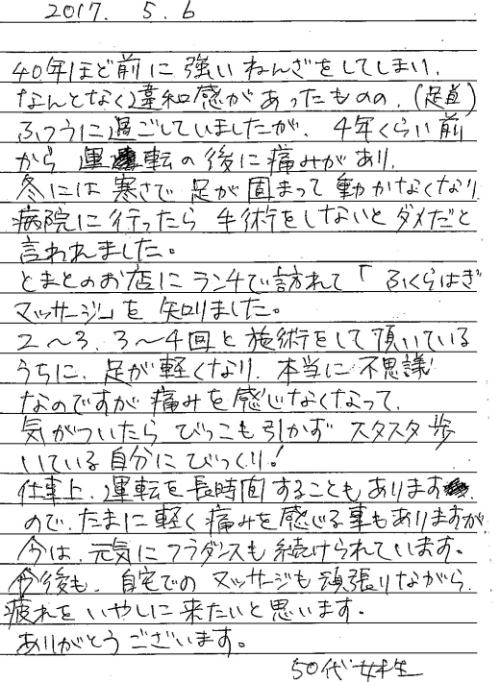 2017. 5. 6
40年ほど前に強いねんざをしてしまい、
なんとなく違和感があったものの、(足首)
ふつうに過ごしていましたが、4年くらい前
から 運転の後に痛みがあり、
冬には寒さで足が固まって動かなくなり
病院に行ったら手術をしないとダメだと
言われました。
とまとのお店にランチで訪れて「ふくらはぎ
マッサージ」を知りました。
2〜3、3〜4回と施術をして頂いている
うちに、足が軽くなり、本当に不思議
なのですが痛みを感じなくなって、
気がついたらびっこも引かずスタスタ歩
いている自分にびっくり!
仕事上、運転を長時間することもあります
ので、たまに軽く痛みを感じる事もありますが
今は、元気にフラダンスも続けられています。
今後も、自宅でのマッサージも頑張りながら、
疲れをいやしに来たいと思います。
ありがとうございます。
50代女性